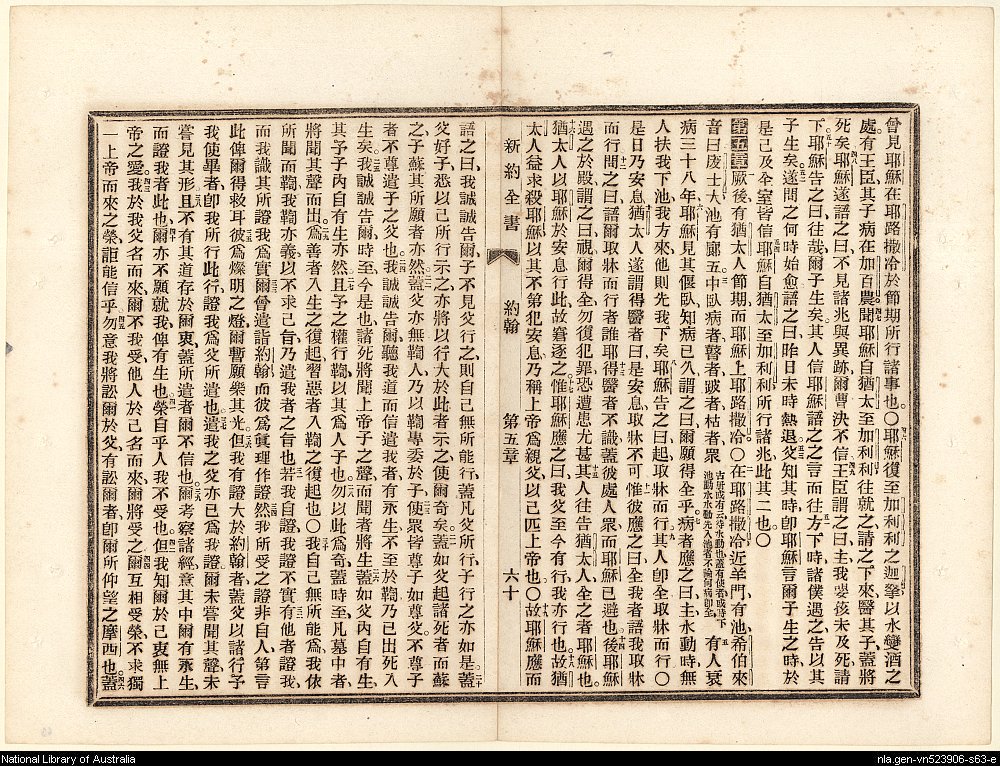 曾見耶穌在耶路撒冷於節期所行諸事也〇耶穌復至加利利之迦拏以水變酒之
處有王臣其子病在加百農聞耶穌自猶太至加利利往就之請之下來醫其子蓋將
死矣耶穌遂語之曰不見諸兆與異跡爾曹決不信王臣謂之曰主我孩未及死請
下耶穌告之曰往哉爾子生矣其人信耶穌語之之言而往方下時諸僕遇之告以其
子生矣遂問之何時始愈語之曰昨日未時熱退父知其時卽耶穌言爾子生之時於
是己及全室皆信耶穌自猶太至加利利所行諸兆此其二也〇
第五章厥後有猶太人節期而耶穌上耶路撒冷〇在耶路撒冷近羊門有池希伯來
音曰士大池有廊五中臥病者瞽者跛者枯者眾 有人衰
病三十八年耶穌見其偃臥知病已久謂之曰爾願得全乎病者應之曰主水動時無
人扶我下池我方來他則先我下矣耶穌告之曰起取牀而行其人卽全取牀而行〇
是日乃安息猶太人遂謂得醫者曰是安息取牀不可惟彼應之曰全我者語我取牀
而行問之曰語爾取牀而行者誰耶得醫者不識蓋彼處人眾而耶穌已避也後耶穌
遇之於殿謂之曰視爾得全勿復犯罪恐遭患尤甚其人往告猶太人全之者耶穌也
猶太人以耶穌於安息行此故窘逐之惟耶穌應之曰我父至今有行我亦行也故猶
太人益求殺耶穌以其不第犯安息乃稱上帝爲親父以己匹上帝也〇故耶穌應而
新約全書 約翰 第五章 六十
語之曰我誠誠告爾子不見父行之則自己無所能行蓋凡父所行子行之亦如是蓋
父好子悉以己所行示之亦將以行大於此者示之使爾奇矣蓋如父起諸死者而蘇
之子蘇其所願者亦然蓋父亦無鞫人乃以鞫專委於子使眾皆尊子如尊父不尊子
者不尊遣子之父也我誠誠告爾聽我道而信遣我者有永生不至於鞫乃已出死入
生矣我誠誠告爾時至今是也諸死將聞上帝子之聲而聞者將生蓋如父內自有生
其予子內自有生亦然且予之權行鞫以其爲人子也勿以此爲奇蓋時至凡墓中者
將聞其聲而出爲善者入生之復起習惡者入鞫之復起也〇我自己無所能爲我依
所聞而鞫我鞫亦義以不求己旨乃遣我者之旨也若我自證我證不實有他者證我
而我識其所證我爲實爾曾遣詣約翰而彼爲真理作證然我所受之證非自人第言
此俾爾得救耳彼爲燦明之燈爾暫願樂其光但我有證大於約翰者蓋父以諸行予
我使畢者卽我所行此行證我爲父所遣也遣我之父亦已爲我證爾未嘗聞其聲未
嘗見其形且不有其道存於爾衷蓋所遣者爾不信也爾考察諸經意其中爾有永生
而證我者此也爾亦不願就我俾有生也榮自乎人我不受也但我知爾於己衷無上
帝之愛我於我父名而來爾不我受他人於己名而來爾將受之爾互相受榮不求獨
一上帝而來之榮詎能信乎勿意我將訟爾於父有訟爾者卽爾所仰望之摩西也蓋
National Library of Australia
nla.gen-vn523906-s63-e